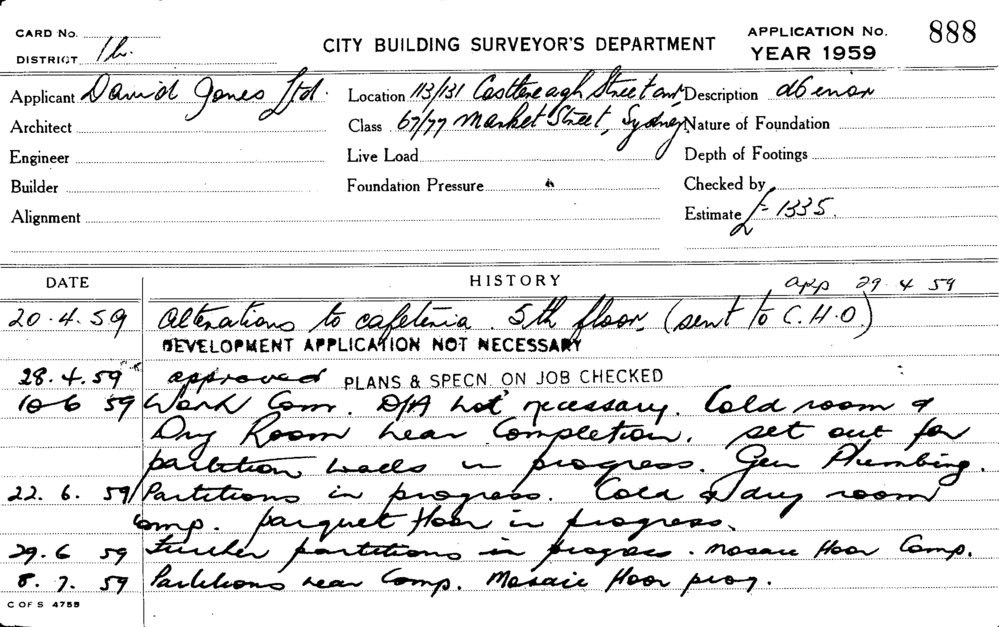 CARD No.
DISTRICT
CITY BUILDING SURVEYOR'S DEPARTMENT
APPLICATION No. 888
YEAR 1959
Applicant David Jones Ltd. Location 113/131 Castlereagh Street and Description
Architect Class 67/77 Market Street, Sydney Nature of Foundation
Engineer Live Load Depth of Footings
Builder Foundation Pressure Checked by
Alignment Estimate £ 1335.
DATE HISTORY app 29 4 59
20.4.59 Alterations to cafeteria. 5th floor. (sent to C.H.O.)
DEVELOPMENT APPLICATION NOT NECESSARY
28.4.59 approved PLANS & SPECN. ON JOB CHECKED
10 6 59 Work Com. D/A not necessary. Cold room &
Dry Room near Completion. set out for
partition walls in progress. Gen Plumbing.
22.6.59 Partitions in progress. Cold & dry room
Comp. parquet floor in progress.
29.6 59 Further partitions in progress. Mosaic floor Comp.
8.7.59 Partitions near Comp. Mosaic floor prog.
C OF S 4755